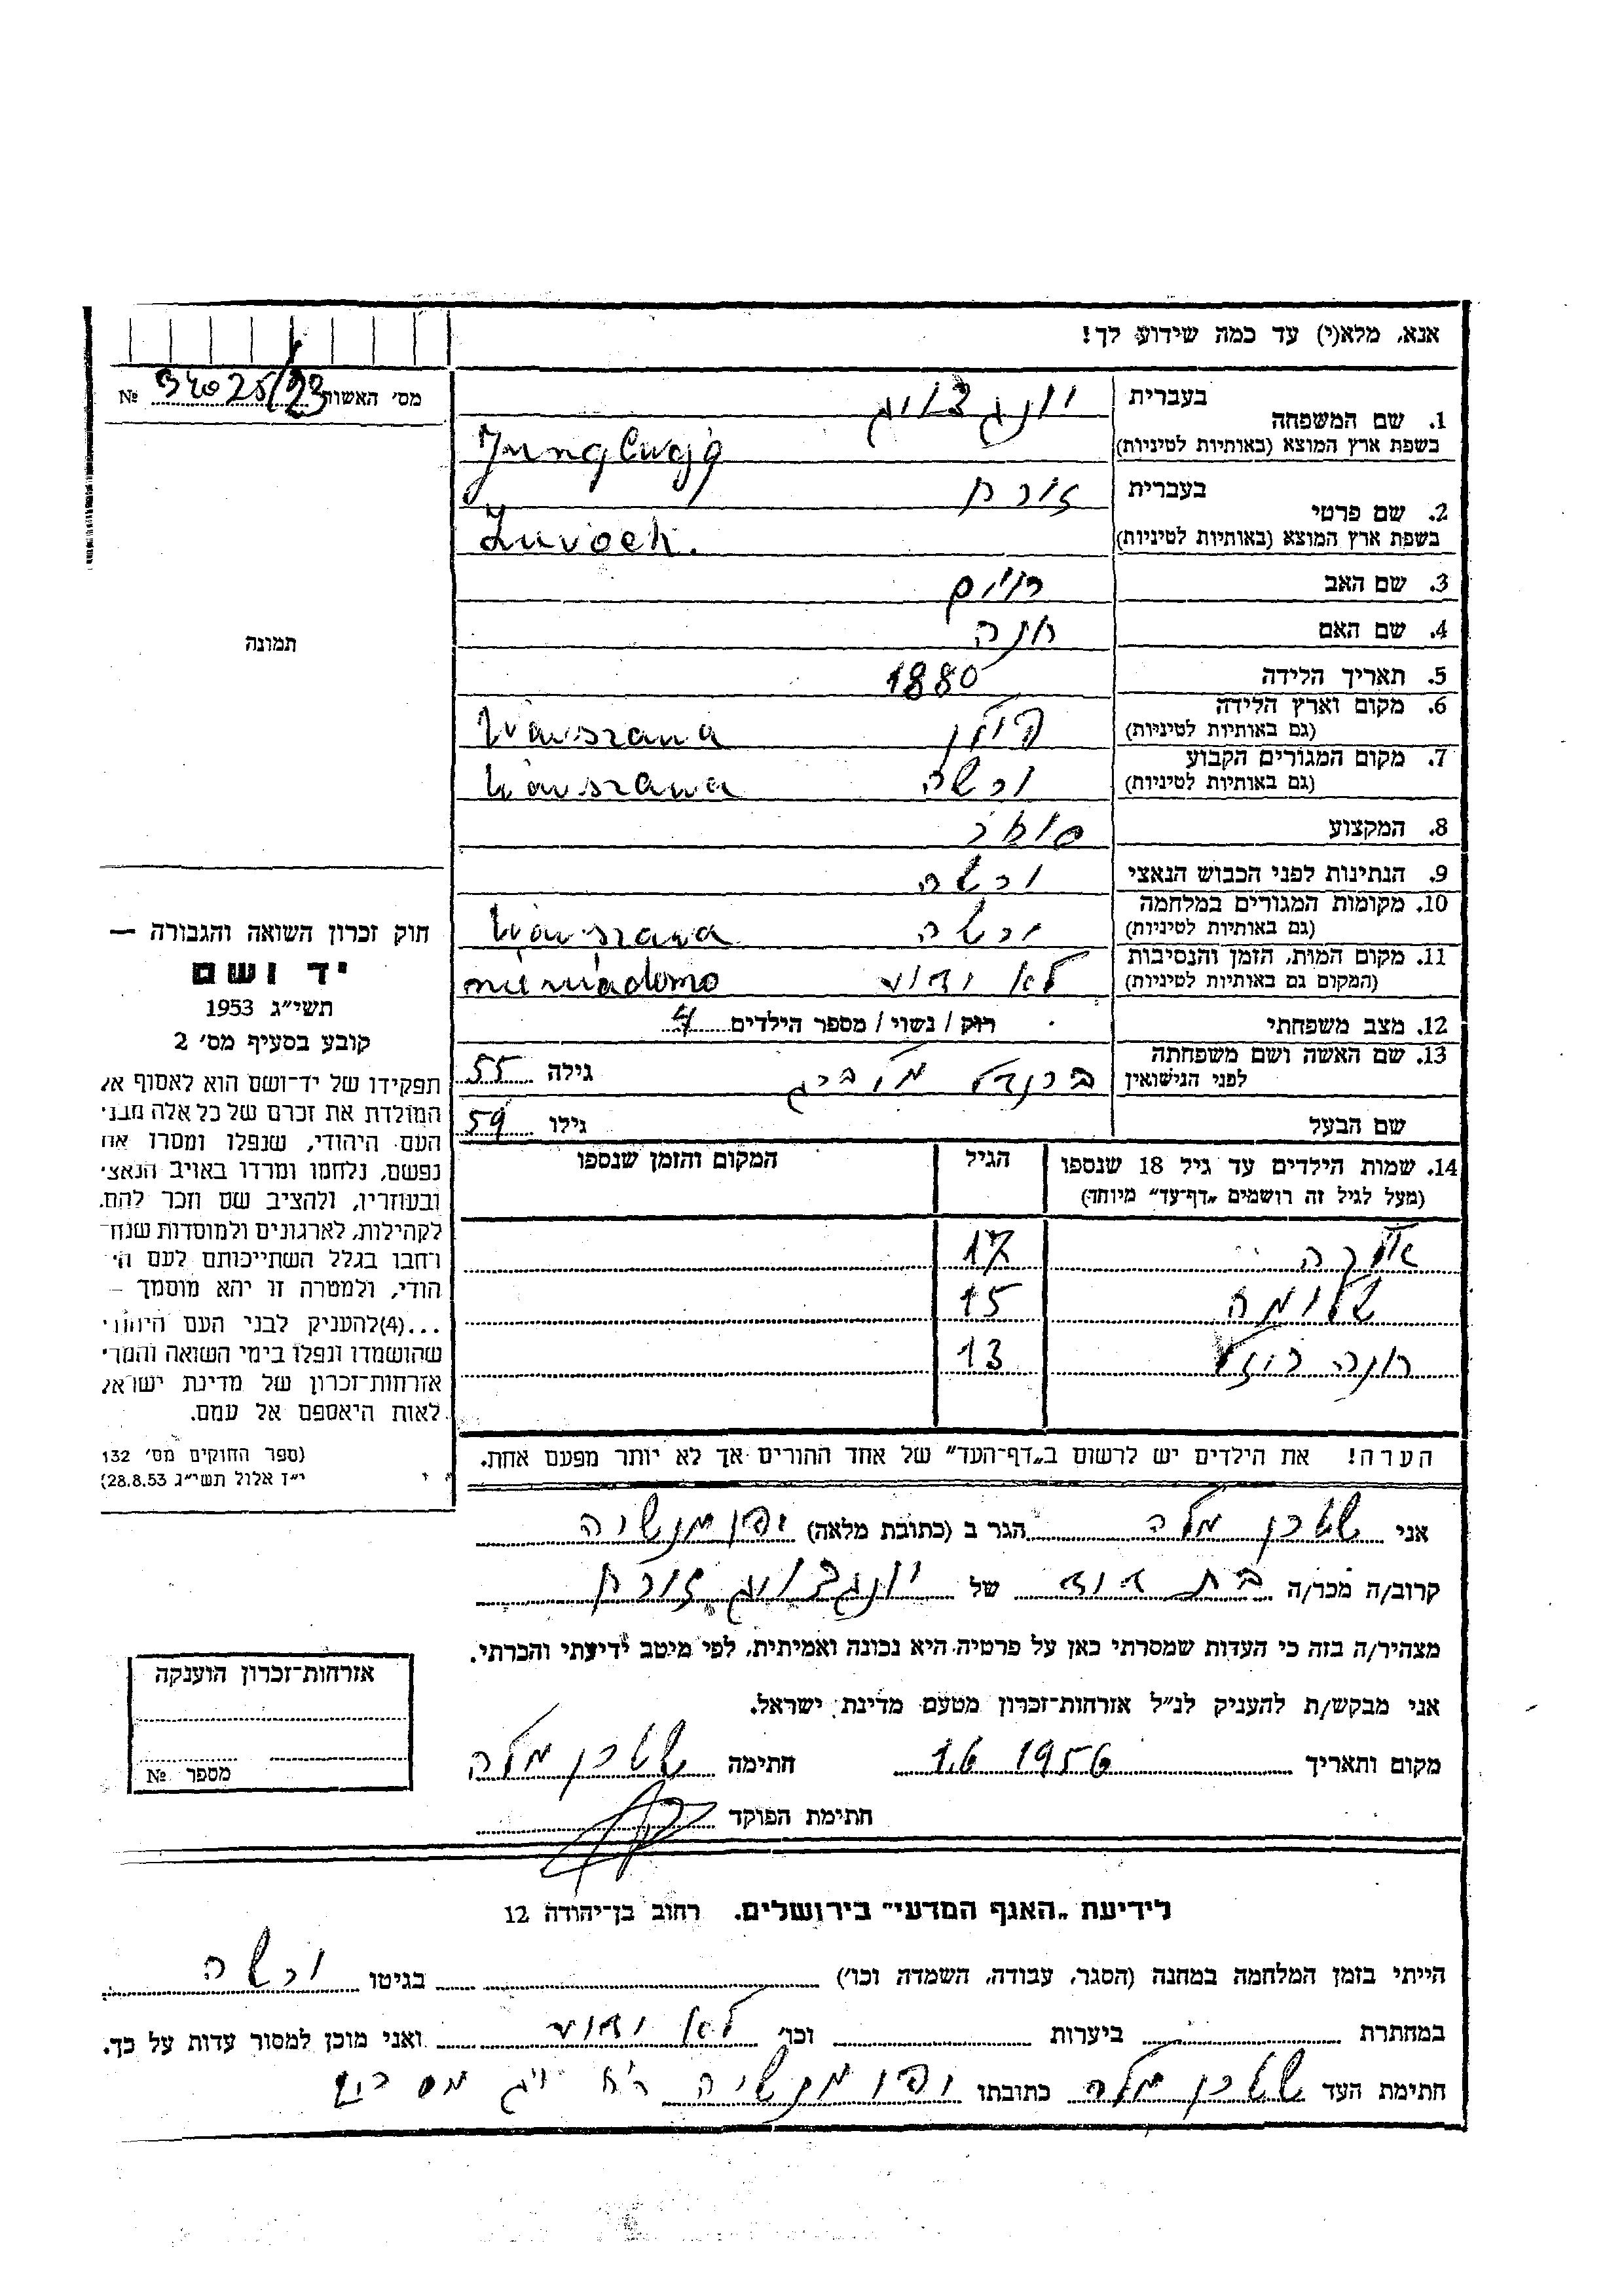 אנא, מלא(י) עד כמה שידוע לך!
מס׳ האשור № 34025/23
1. שם המשפחה
בעברית
בשפת ארץ המוצא (באותיות לטיניות)
2. שם פרטי
בעברית זורח
בשפת ארץ המוצא (באותיות לטיניות)
3. שם האב חיים
4. שם האם חנה
5. תאריך הלידה 1880
6. מקום וארץ הלידה פולין Warszawa
(גם באותיות לטיניות)
7. מקום המגורים הקבוע ורשה Warszawa
(גם באותיות לטיניות)
8. המקצוע סוחר
9. הנתינות לפני הכבוש הנאצי ורשה
10. מקומות המגורים במלחמה ורשה Warszawa
(גם באותיות לטיניות)
11. מקום המות, הזמן והנסיבות לא ידוע
(המקום גם באותיות לטיניות)
12. מצב משפחתי רוק / נשוי / מספר הילדים 4
13. שם האשה ושם משפחתה
לפני הנישואין גילה 55
שם הבעל גילו 59
14. שמות הילדים עד גיל 18 שנספו הגיל המקום והזמן שנספו
(מעל לגיל זה רושמים „דף־עד״ מיוחד)
17
15
חנה רוזל 13
הערה! את הילדים יש לרשום ב„דף־העד״ של אחד ההורים אך לא יותר מפעם אחת.
תמונה
חוק זכרון השואה והגבורה —
יד ושם
תשי״ג 1953
קובע בסעיף מס׳ 2
תפקידו של יד־ושם הוא לאסוף א
המולדת את זכרם של כל אלה מבני
העם היהודי, שנפלו ומסרו את
נפשם, נלחמו ומרדו באויב הנאצי
ובעוזריו, ולהציב שם וזכר להם,
לקהילות, לארגונים ולמוסדות שנח
רחבו בגלל השתייכותם לעם הי
הודי, ולמטרה זו יהא מוסמך –
...(4) להעניק לבני העם היהודי
שהושמדו ונפלו בימי השואה והמרי
אזרחות־זכרון של מדינת ישראל
לאות היאספם אל עמם.
(ספר החוקים מס׳ 132
י״ז אלול תשי״ג 28.8.53)
אני שטרן מלה הגר ב (כתובת מלאה) יפו מנשיה
קרוב/ה מכר/ה בת דוד של יונגצוויג זורח
מצהיר/ה בזה כי העדות שמסרתי כאן על פרטיה היא נכונה ואמיתית, לפי מיטב ידיעתי והכרתי.
אני מבקש/ת להעניק לנ״ל אזרחות־זכרון מטעם מדינת ישראל.
מקום ותאריך 1.6 1956 חתימה שטרן מלה
חתימת הפוקד
אזרחות־זכרון הוענקה
מספר №
לידיעת „האגף המדעי״ בירושלים. רחוב בן־יהודה 12
הייתי בזמן המלחמה במחנה (הסגר, עבודה, השמדה וכו׳) בגיטו ורשה
במחתרת ביערות וכו׳ לא ידוע ואני מוכן למסור עדות על כך.
חתימת העד שטרן מלה כתובתו יפו מנשיה